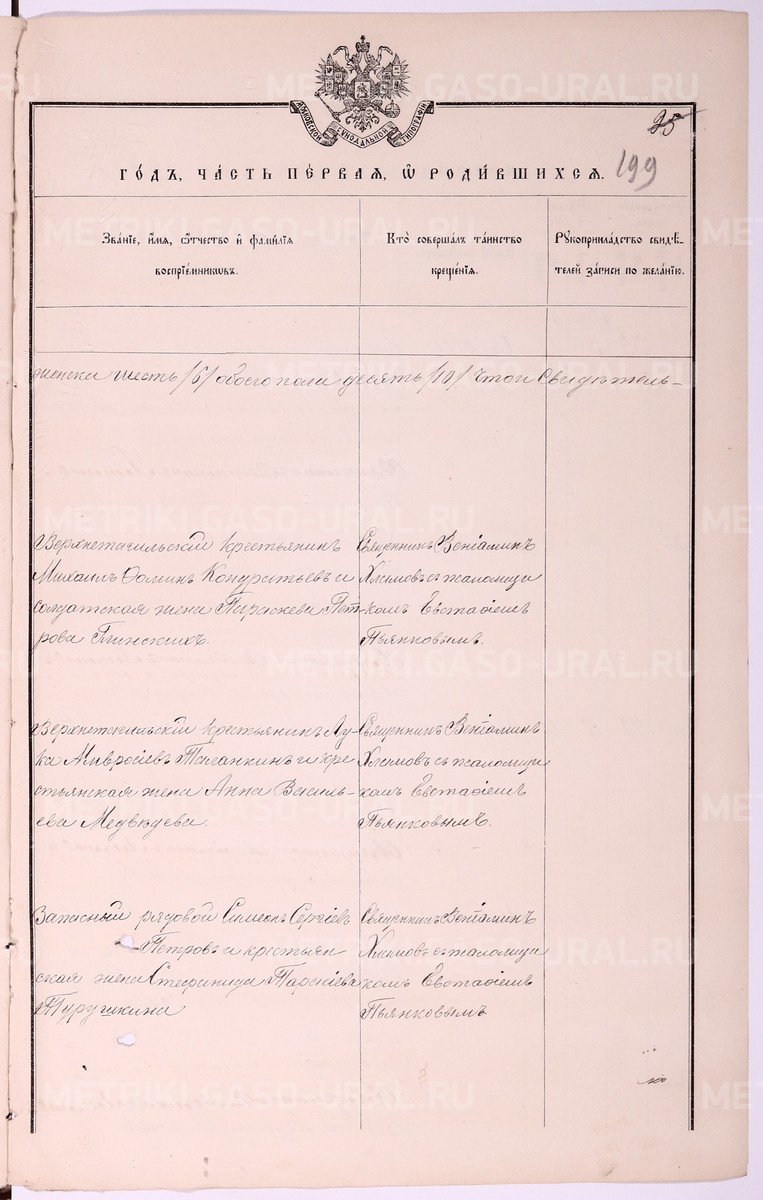 МОСКОВСКОЙ СѴНОДАЛЬНОЙ ТИПОГРАФІИ
25
199
ГО́ДЪ, ЧА́СТЬ ПЕ́РВАЯ, Ѿ РОДИ́ВШИХСЯ.
Зва́нїе, и҆́мя, ѻ҆́тчество и҆ фами́лїя
воспрїе́мникѡвъ.
Кто̀ соверша́лъ та́инство
креще́нїя.
Рꙋкоприкла́дство свидѣ́-
телей за́писи по жела́нїю.
женска шесть /6/ обоего пола десять /10/ что и свидѣтель-
Верхнетагильскій крестьянинъ
Михаилъ Ѳоминъ Кондратьевъ и
солдатская жена Параскева Пет-
рова Глинскихъ.
Священникъ Веніаминъ
съ псаломщи
комъ Евстафіемъ
Пьянковымъ.
Верхнетагильскій крестьянинъ Лу-
ка Амвросіевъ Таланкинъ и кре
стьянская жена Анна Василь-
ева Медвѣдева.
Священникъ Веніаминъ
съ псаломщи
комъ Евстафіемъ
Пьянковымъ.
Запасный рядовой Симеонъ Сергіевъ
Петровъ и крестьян
ская жена Стефанида Тарасіева
Турушкина
Священникъ Веніаминъ
съ псаломщи
комъ Евстафіемъ
Пьянковымъ
METRIKI.GASO-URAL.RU